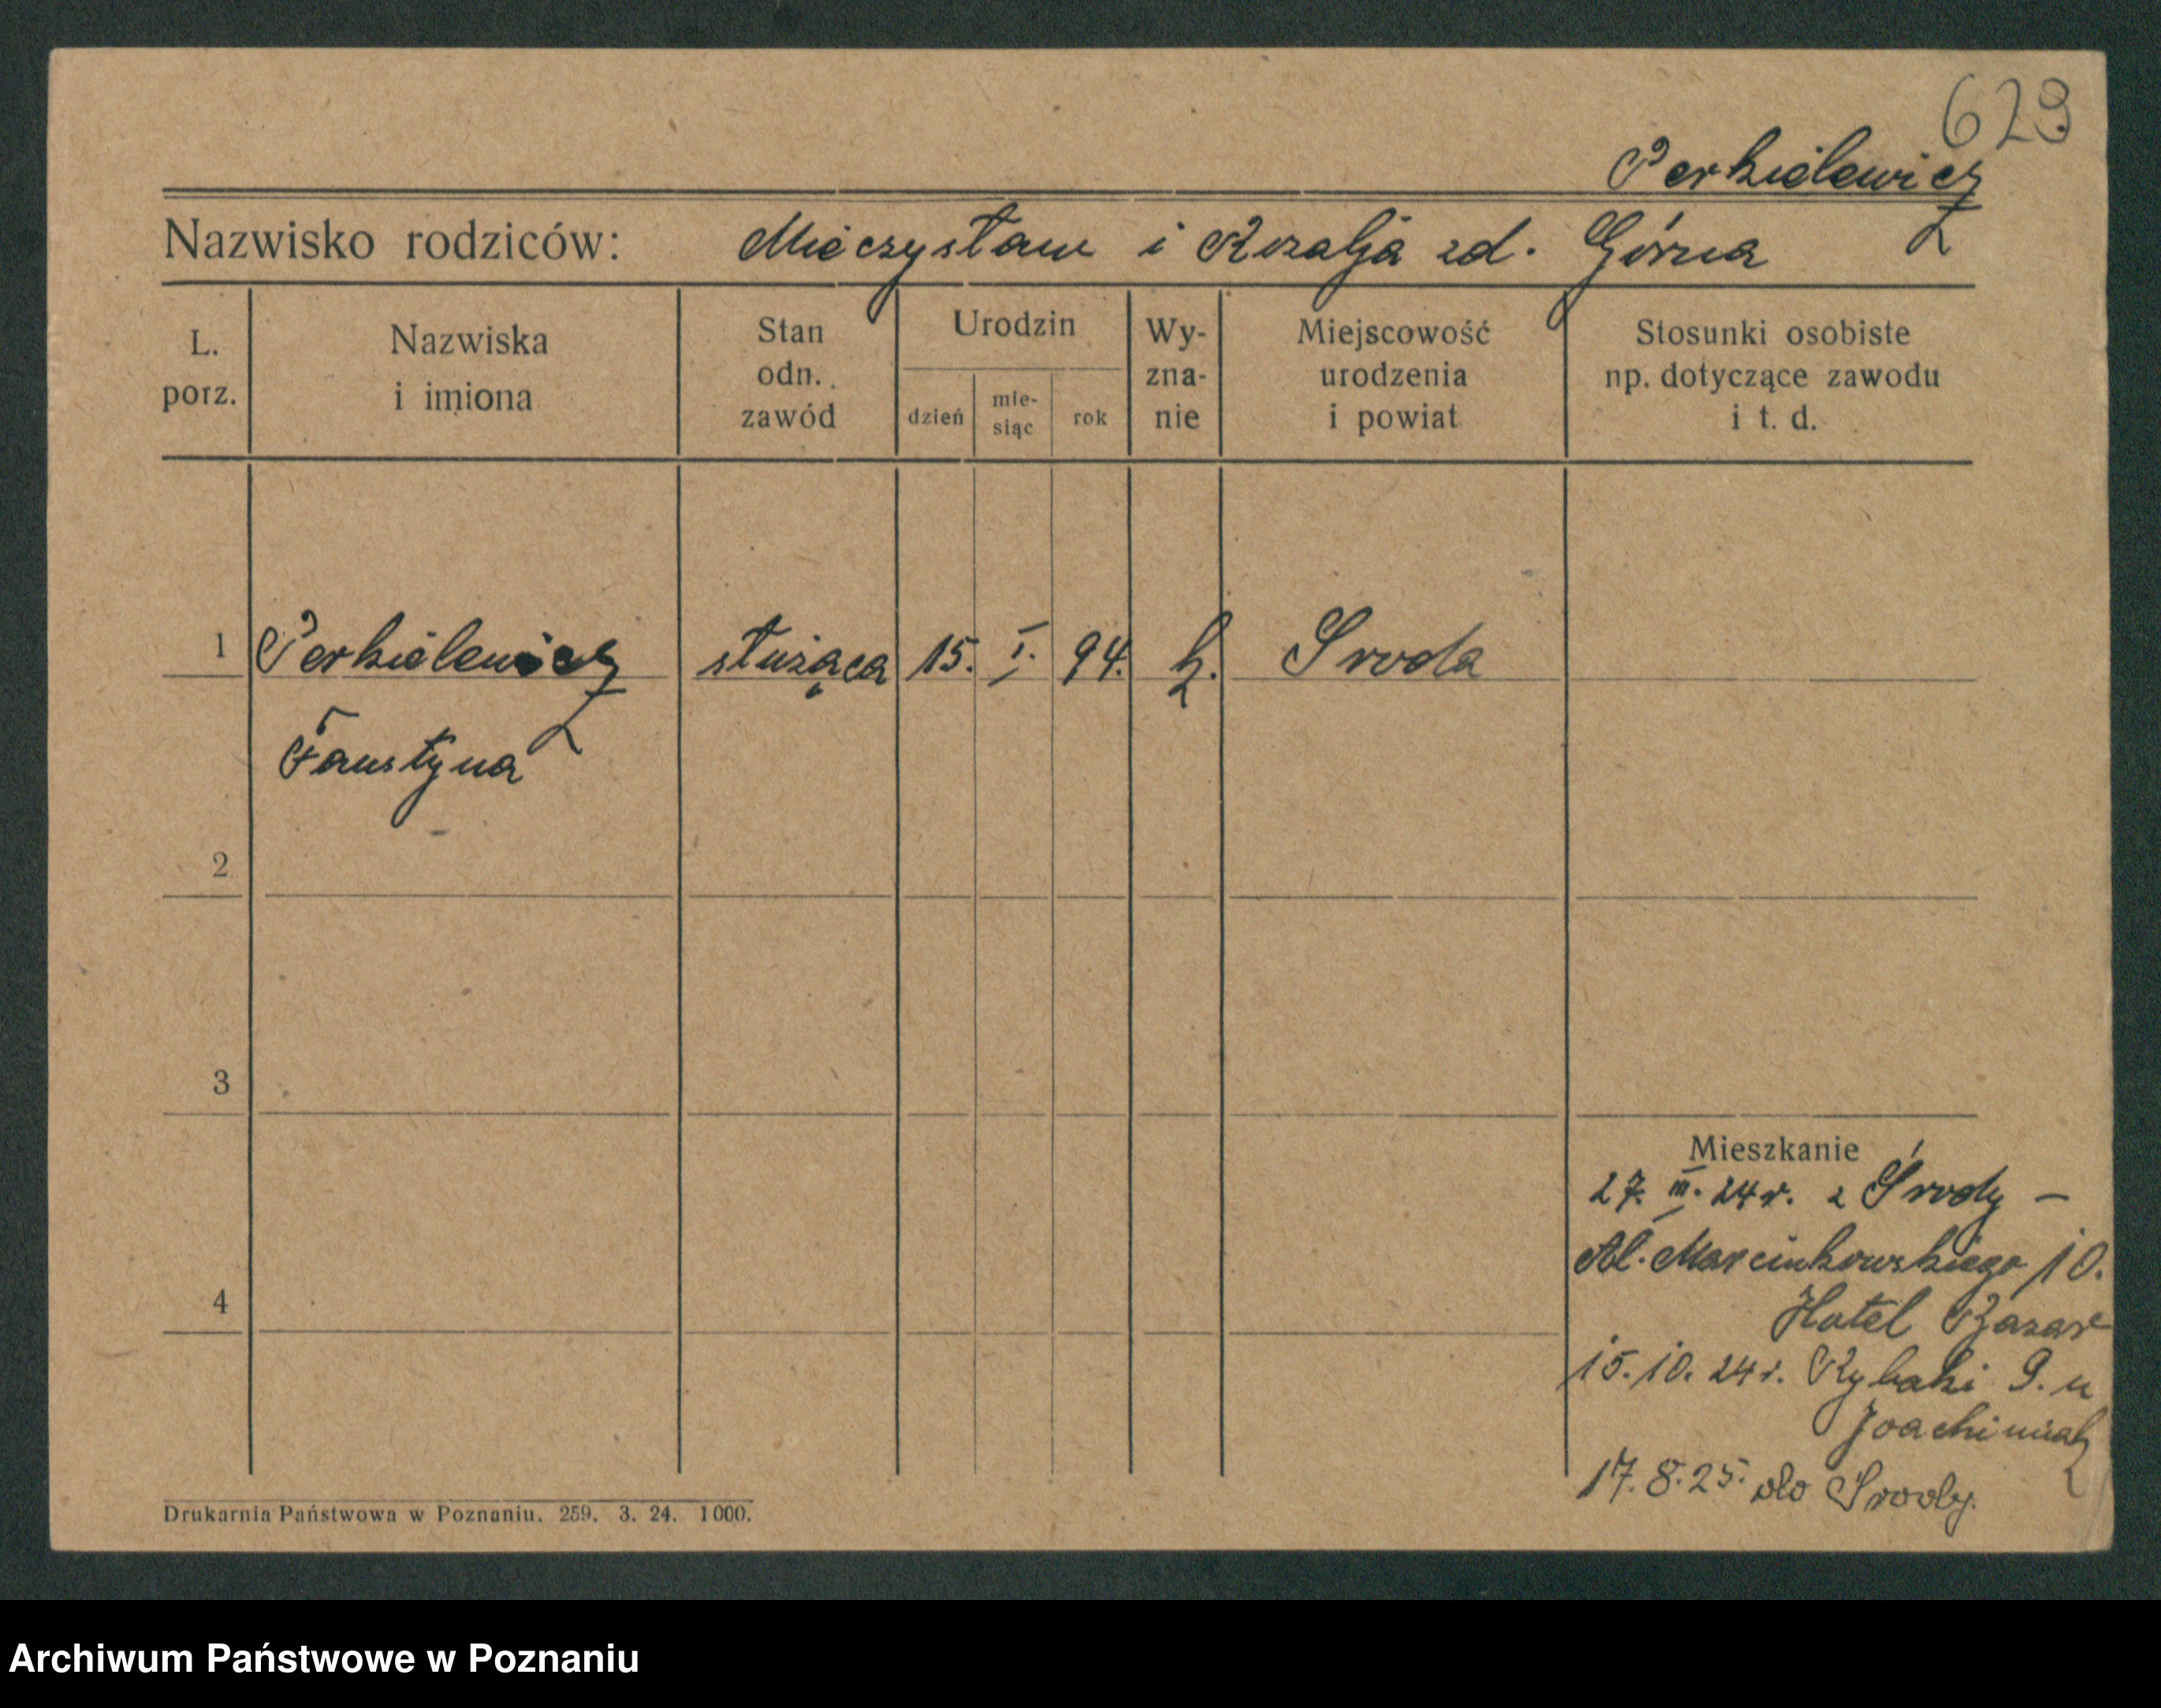 629
Perkiélewicz
Nazwisko rodziców: Mieczysław i Rozalja zd. Górna
L. porz.
Nazwiska i imiona
Stan odn. zawód
Urodzin
dzień
mie-siąc
rok
Wy-zna-nie
Miejscowość urodzenia i powiat
Stosunki osobiste np. dotyczące zawodu i t. d.
1 Perkiélewicz służąca 15. I. 94. k. Środa
Faustyna
2
3
4
Mieszkanie
27. III. 24 r. z Środy –
Al. Marcinkowskiego 10.
Hotel Bazar
15. 10. 24 r. Rybaki 9. u
Joachimiak
17. 8. 25. do Środy.
Drukarnia Państwowa w Poznaniu. 259. 3. 24. 1000.
Archiwum Państwowe w Poznaniu